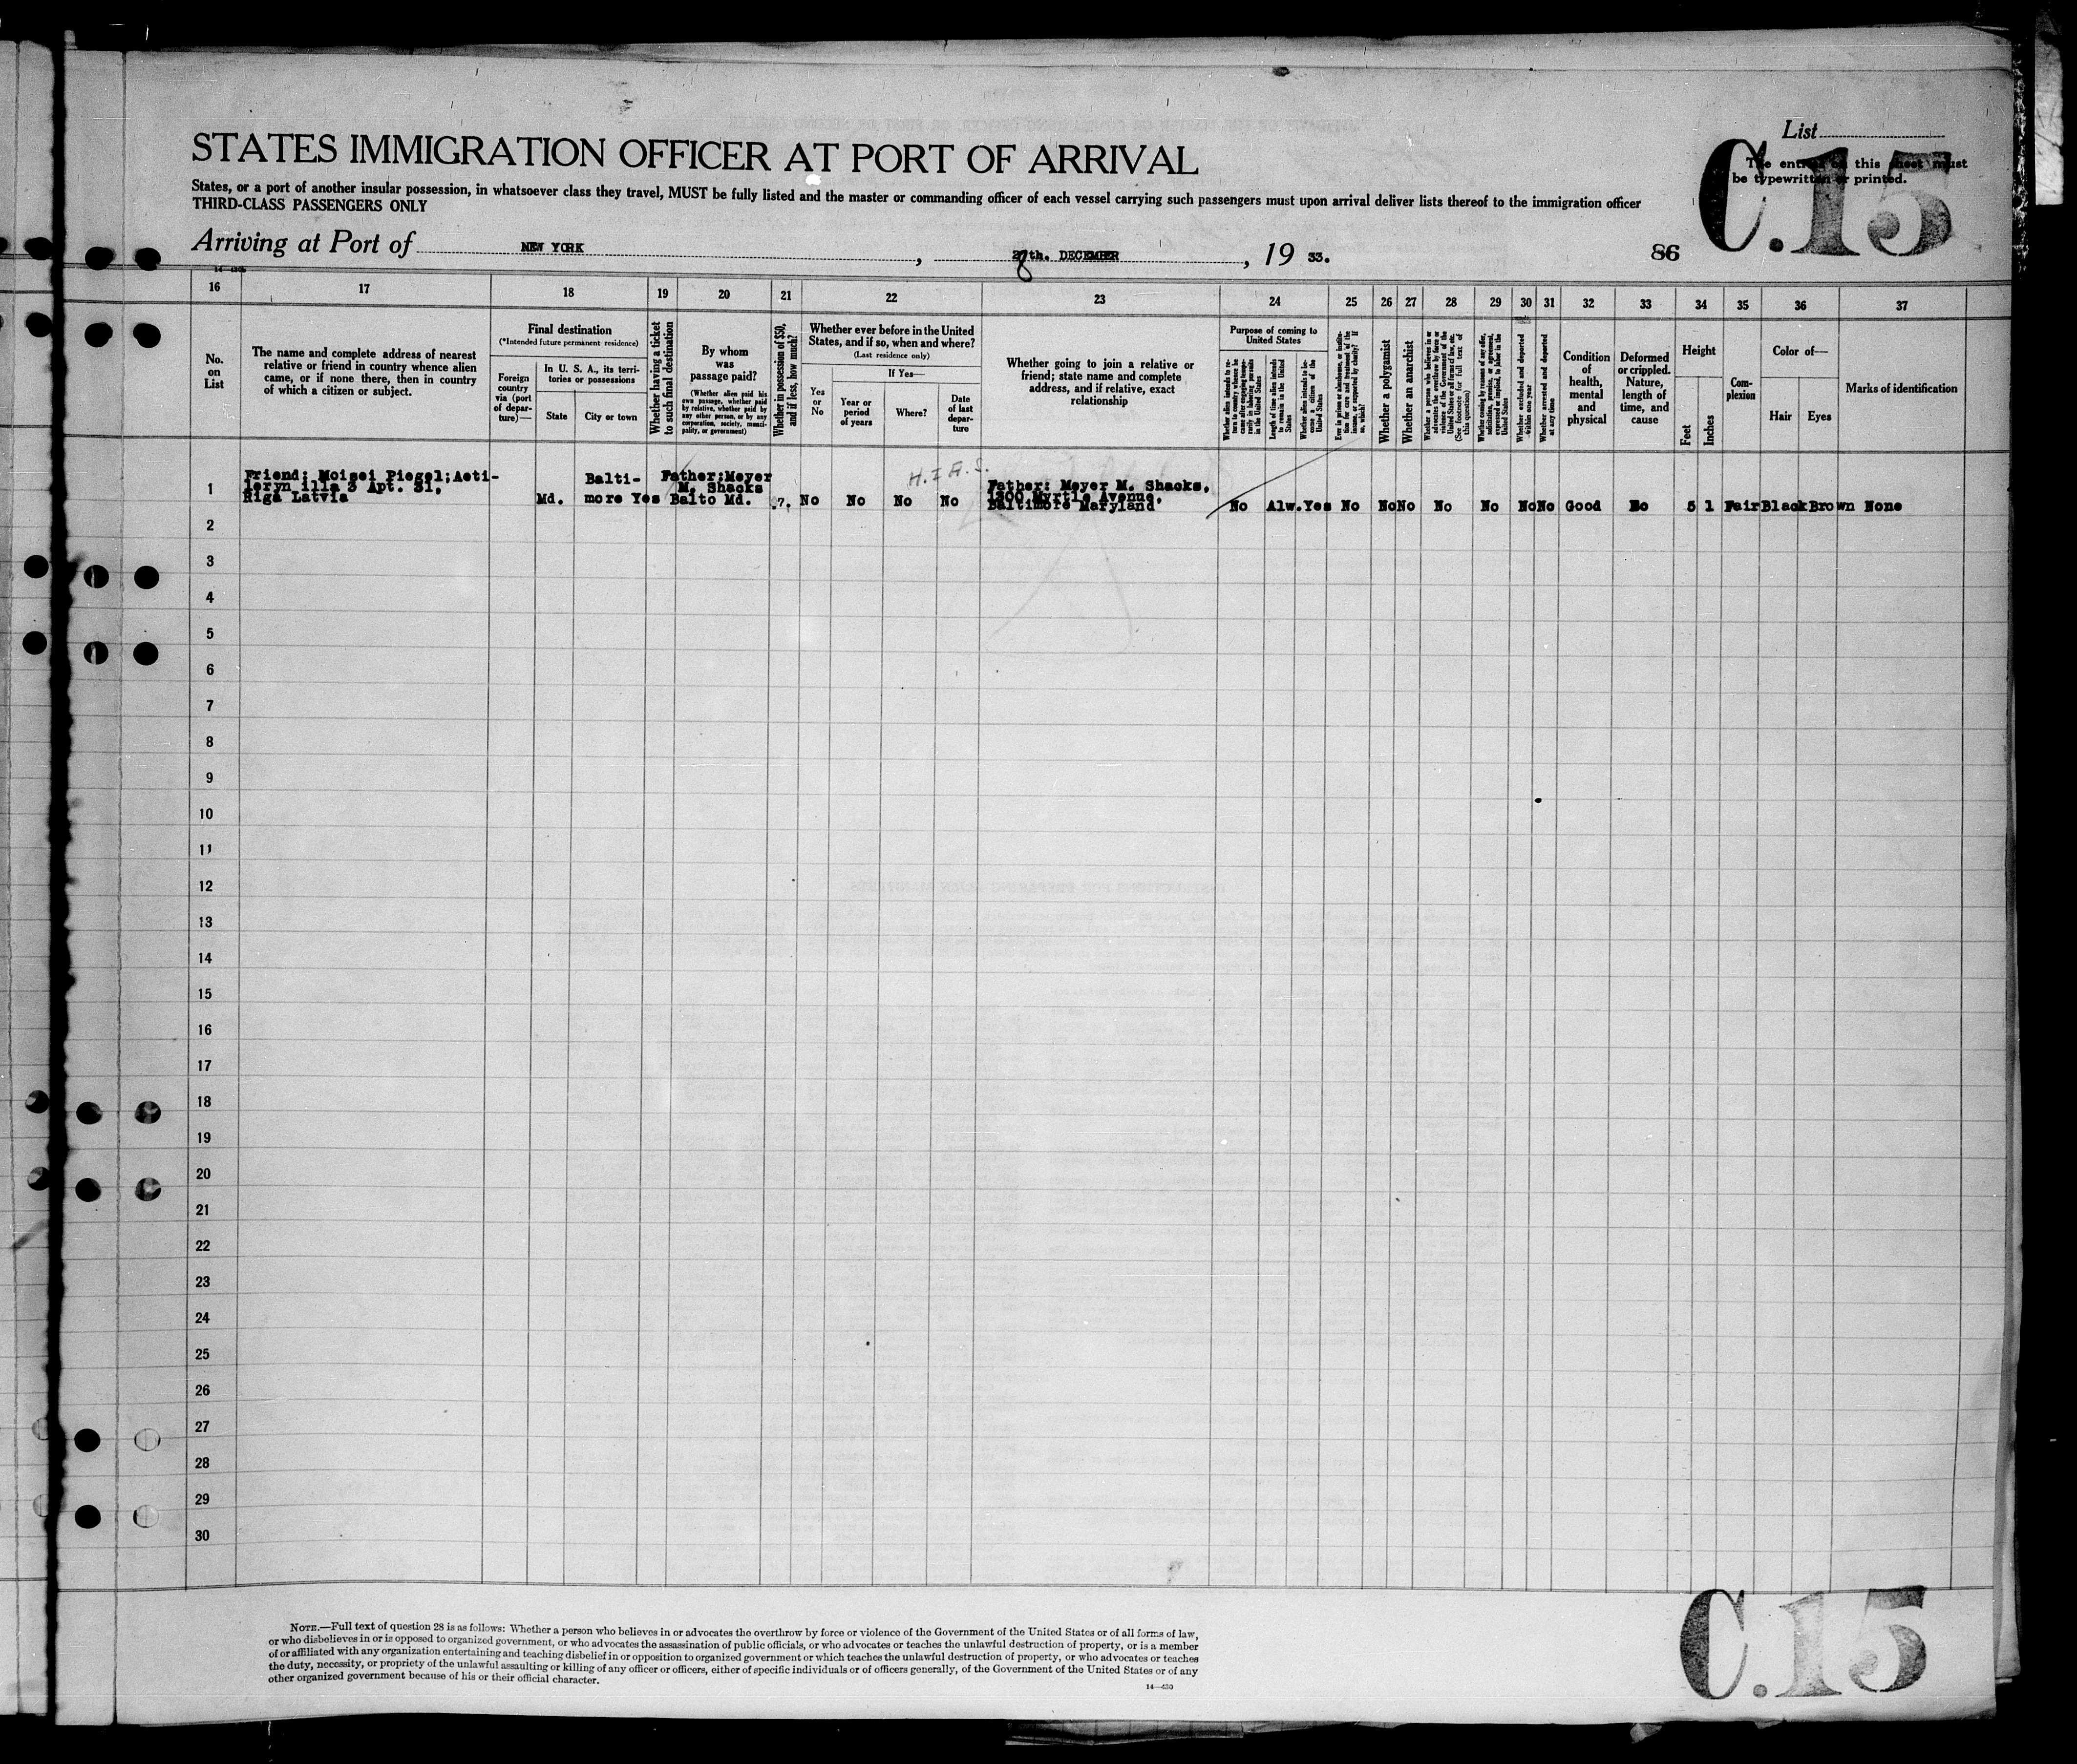 List
The entries on this sheet must
be typewritten or printed.
C.15
STATES IMMIGRATION OFFICER AT PORT OF ARRIVAL
States, or a port of another insular possession, in whatsoever class they travel, MUST be fully listed and the master or commanding officer of each vessel carrying such passengers must upon arrival deliver lists thereof to the immigration officer
THIRD-CLASS PASSENGERS ONLY
Arriving at Port of NEW YORK, 28th. DECEMBER, 19 33. 86
16 17 18 19 20 21 22 23 24 25 26 27 28 29 30 31 32 33 34 35 36 37
No. on List
The name and complete address of nearest
relative or friend in country whence alien
came, or if none there, then in country
of which a citizen or subject.
Final destination
(*Intended future permanent residence)
Foreign country via (port of departure)—
In U. S. A., its territories or possessions
State
City or town
Whether having a ticket to such final destination
By whom was passage paid?
(Whether alien paid his own passage, whether paid by relative, whether paid by any other person, or by any corporation, society, municipality, or government)
Whether in possession of $50, and if less, how much?
Whether ever before in the United States, and if so, when and where?
(Last residence only)
Yes or No
If Yes—
Year or period of years
Where?
Date of last departure
Whether going to join a relative or
friend; state name and complete
address, and if relative, exact
relationship
Purpose of coming to United States
Whether alien intends to return to country whence he came after engaging temporarily in laboring pursuits in the United States
Length of time alien intends to remain in the United States
Whether alien intends to become a citizen of the United States
Ever in prison or almshouse, or institution for care and treatment of the insane, or supported by charity? If so, which?
Whether a polygamist
Whether an anarchist
Whether a person who believes in or advocates the overthrow by force or violence of the Government of the United States or all forms of law, etc. (See footnote for full text of this question)
Whether coming by reason of any offer, solicitation, promise, or agreement, expressed or implied, to labor in the United States
Whether excluded and deported within one year
Whether arrested and deported at any time
Condition of health, mental and physical
Deformed or crippled. Nature, length of time, and cause
Height
Feet
Inches
Complexion
Color of—
Hair
Eyes
Marks of identification
H.I.A.S.
1
Friend: Moisei Piegel;
Apt. 31,
Riga Latvia
Md.
Balti-
more
Yes
Father:Meyer
M. Shacks
Balto Md.
7.
No No No No
Father: Meyer M. Shacks,
1300 Myrtle Avenue,
Baltimore Maryland
No Alw. Yes No No No No No No No Good No 5 1 Fair Black Brown None
2
3
4
5
6
7
8
9
10
11
12
13
14
15
16
17
18
19
20
21
22
23
24
25
26
27
28
29
30
NOTE.—Full text of question 28 is as follows: Whether a person who believes in or advocates the overthrow by force or violence of the Government of the United States or of all forms of law,
or who disbelieves in or is opposed to organized government, or who advocates the assassination of public officials, or who advocates or teaches the unlawful destruction of property, or is a member
of or affiliated with any organization entertaining and teaching disbelief in or opposition to organized government or which teaches the unlawful destruction of property, or who advocates or teaches
the duty, necessity, or propriety of the unlawful assaulting or killing of any officer or officers, either of specific individuals or of officers generally, of the Government of the United States or of any
other organized government because of his or their official character.
14—430
C.15